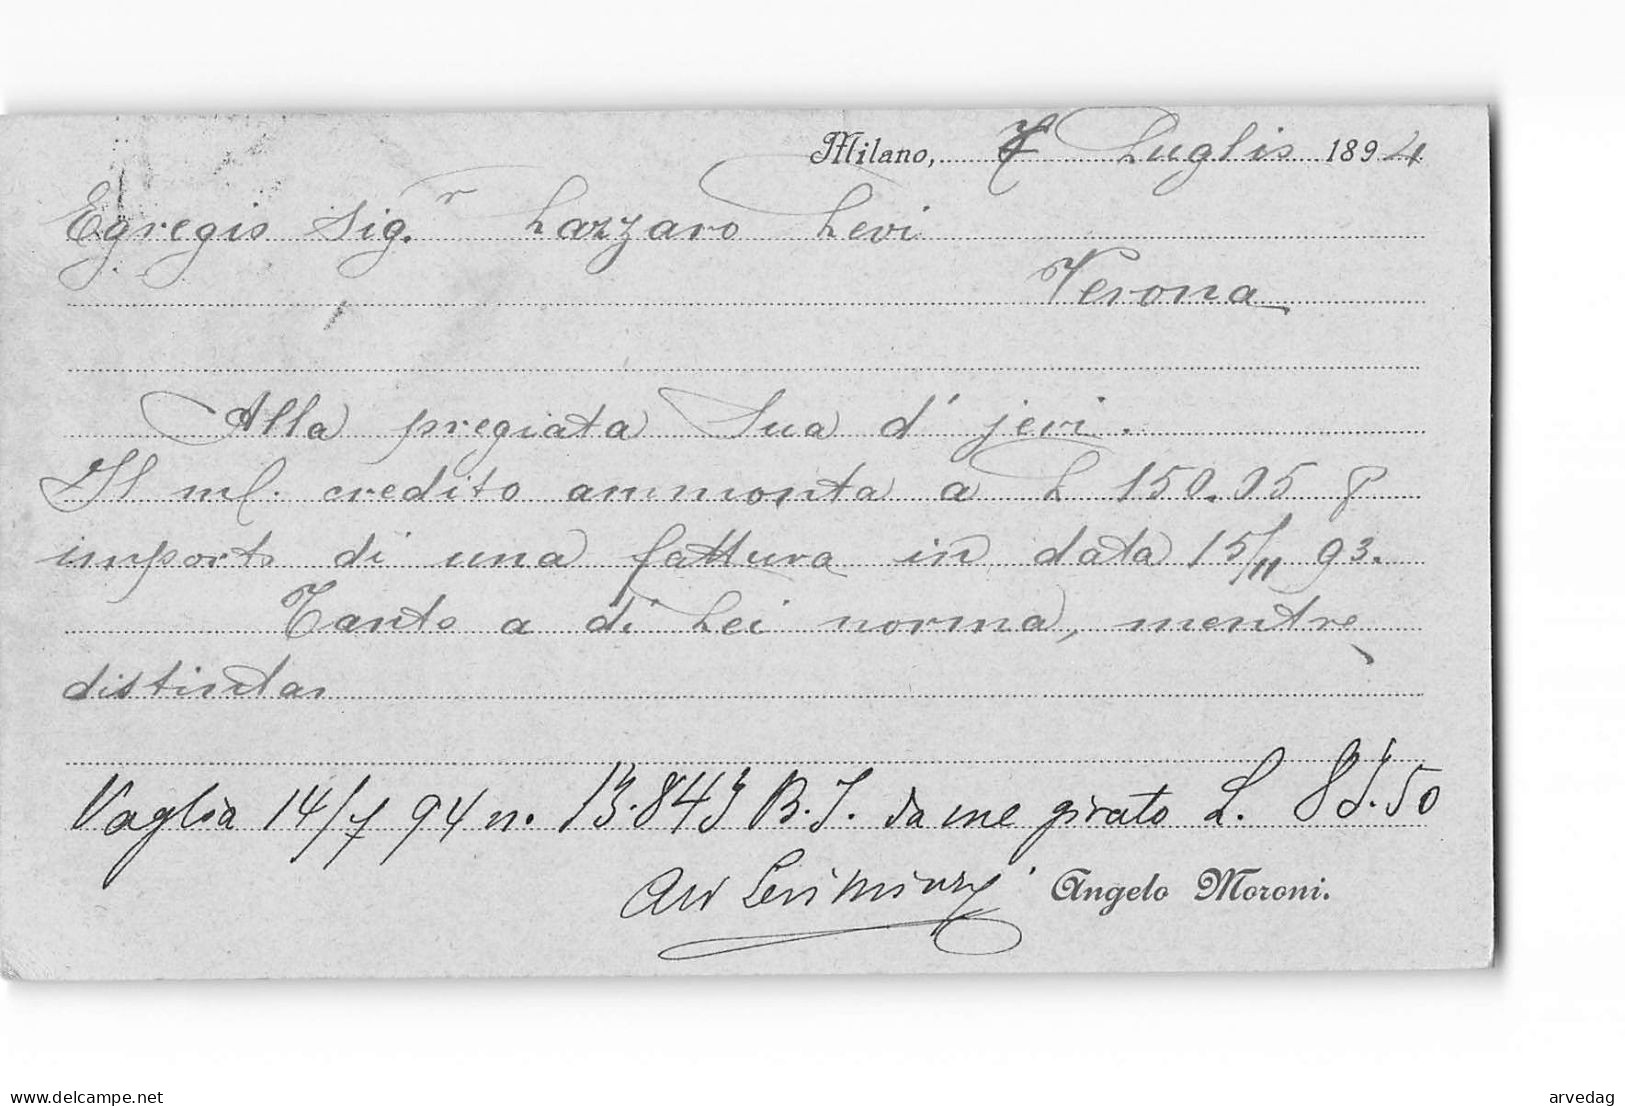 Milano, 7 Luglio 1894
Egregio Sig.r Lazzaro Levi
Verona
Alla pregiata Sua d' jeri.
Il ml. credito ammonta a L 150.05 p
importo di una fattura in data 15/11 93.
Tanto a di Lei norma, mentre
distintam
Vaglia 14/7 94 n. 13.843 B.I. da me girato L. 83.50
Angelo Moroni.
eBay - delcampe.net
arvedag